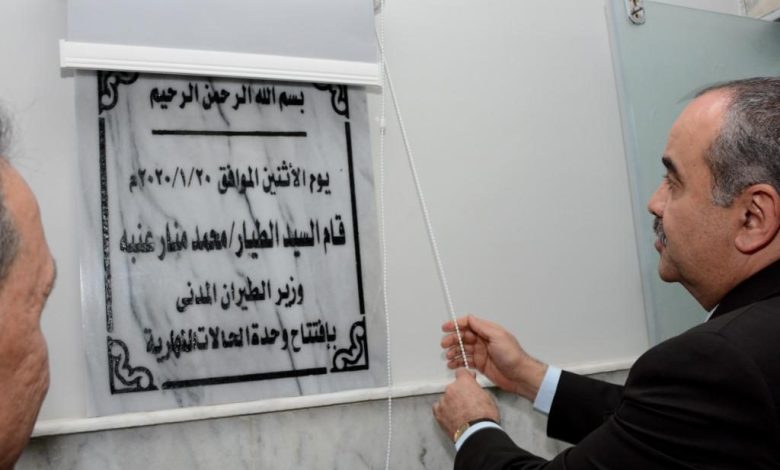 بسم الله الرحمن الرحيم
يوم الأثنين الموافق ٢٠٢٠/١/٢٠م
قام السيد الطيار/محمد منار عنبه
وزير الطيران المدنى
بإفتتاح وحدة الحالات النهارية